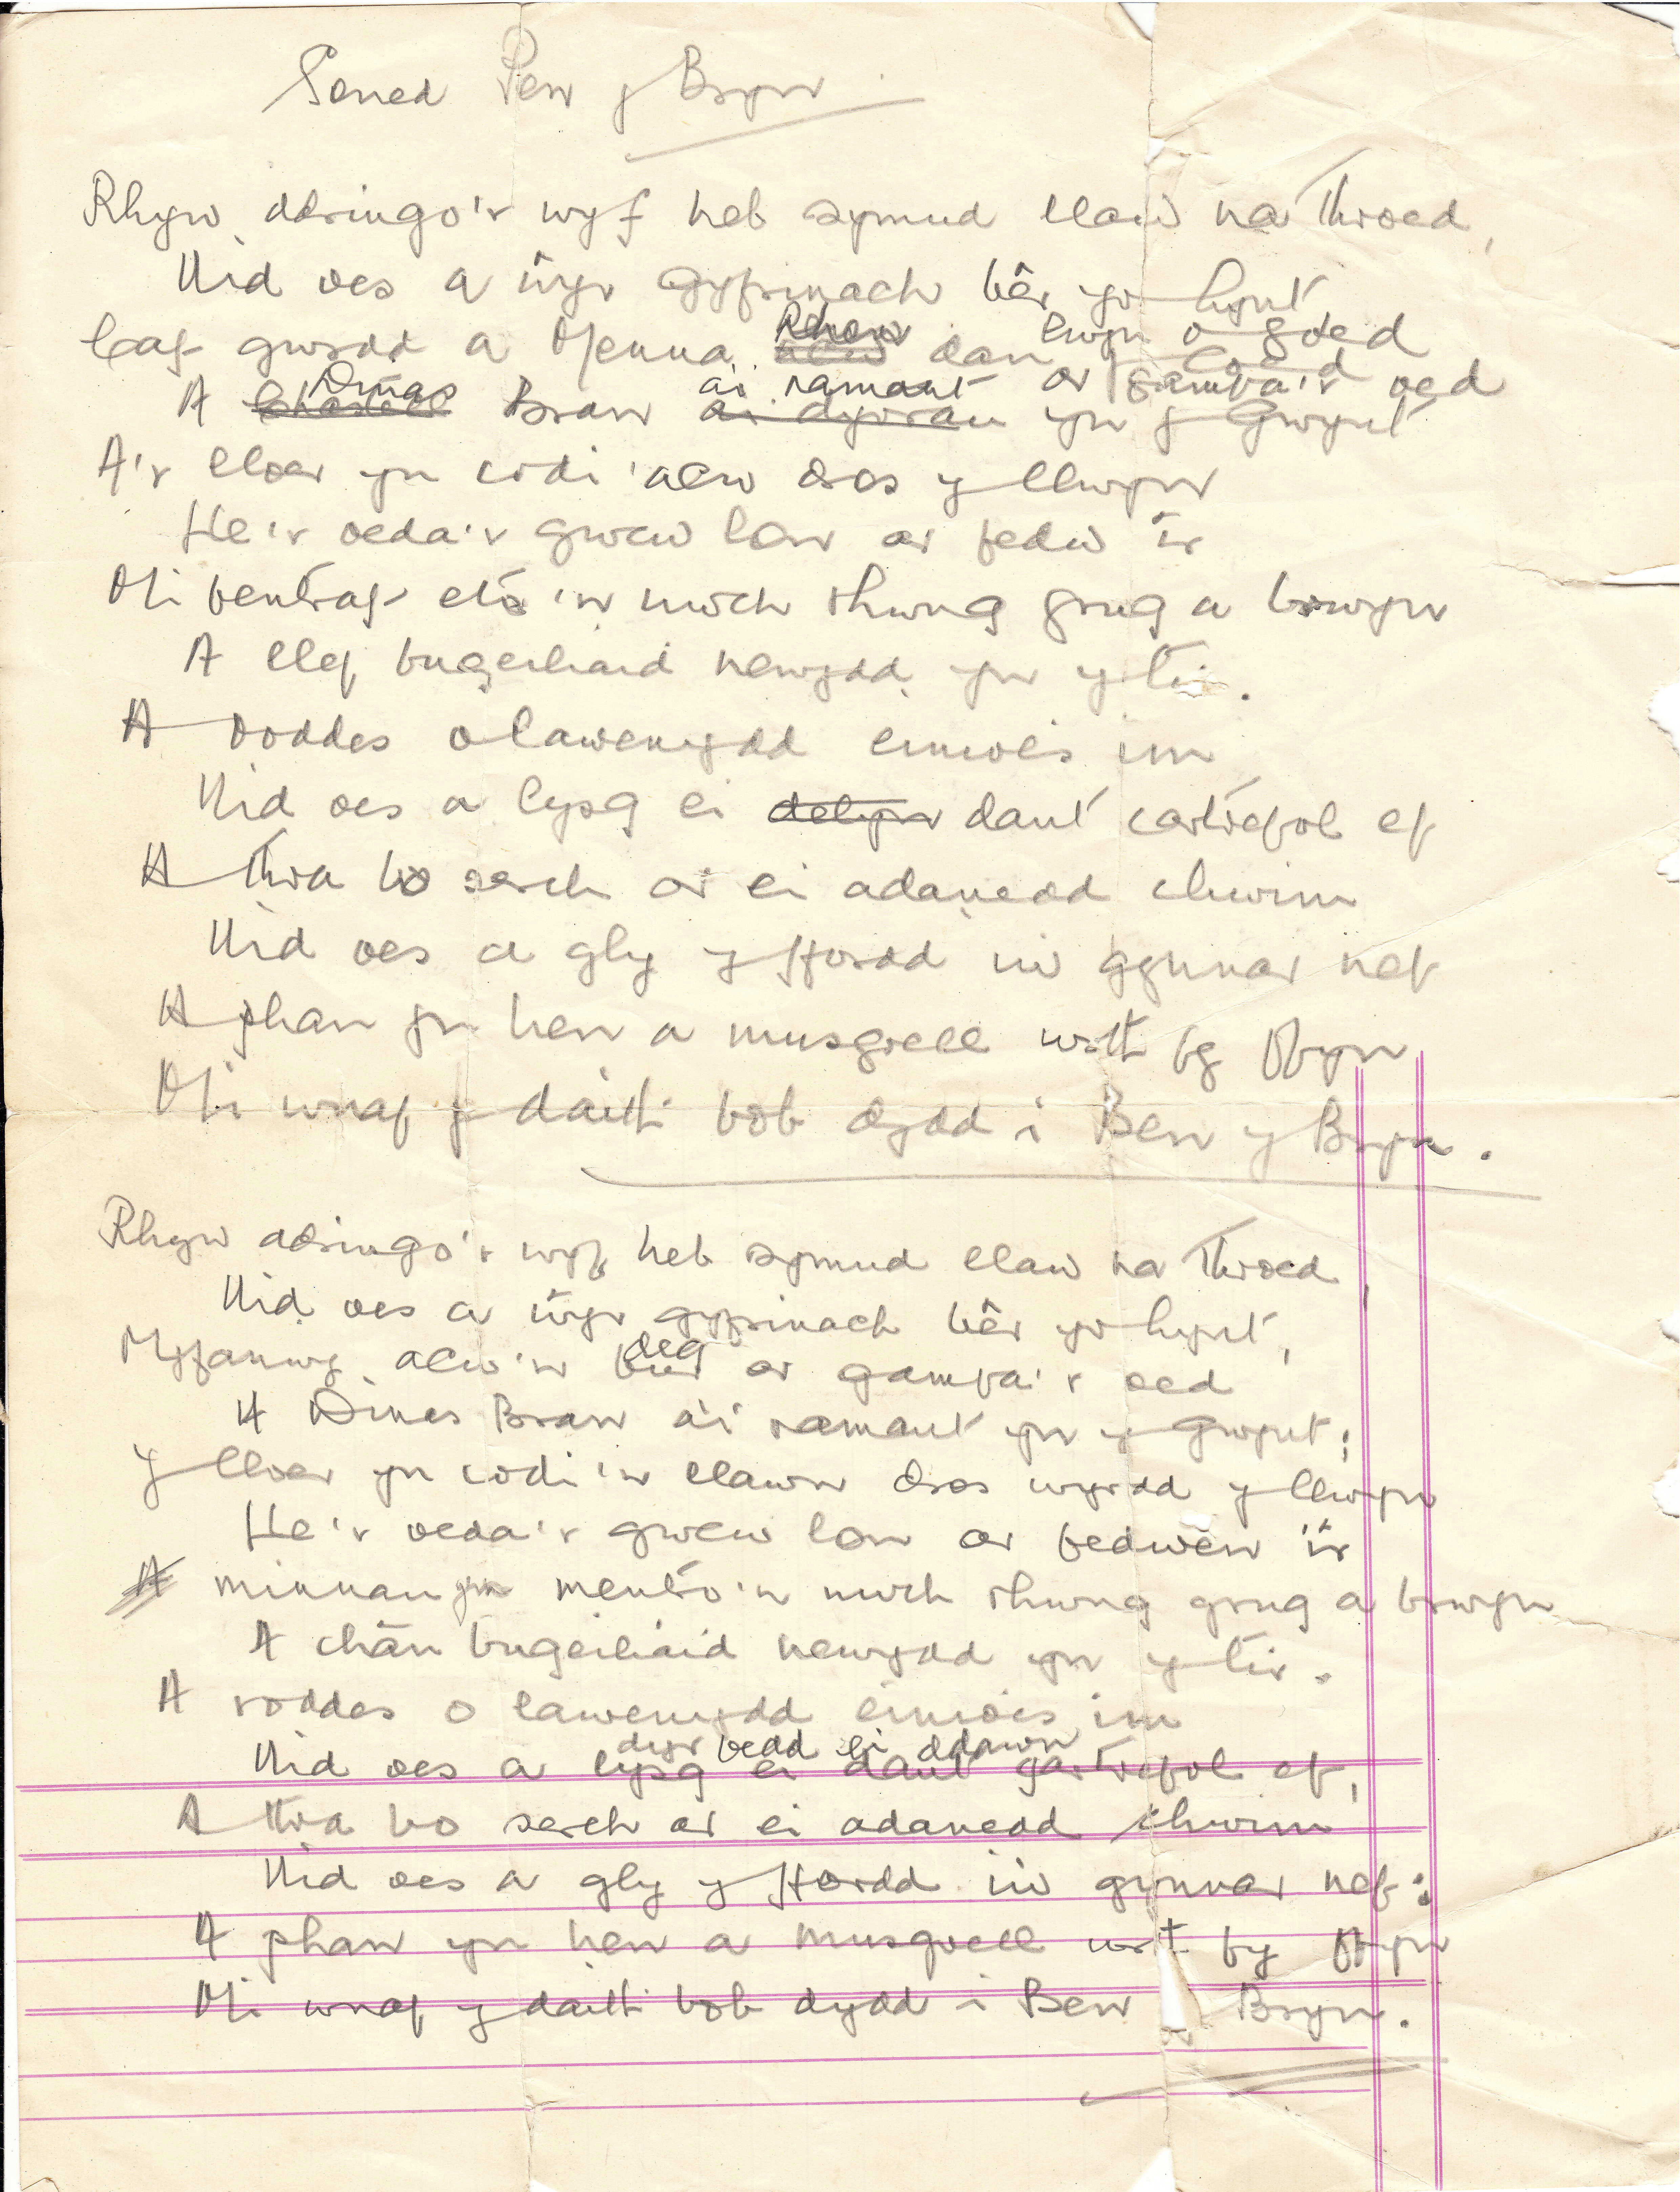 Soned Pen y Bryn
Rhyw ddringo'r wyf heb symud llaw na throed,
Nid oes a ŵyr gyfrinach bêr yr hynt
Caf gwrdd a Menna Rhen dan lwyn o goed
A Dinas Bran a'i ramant ar gamfa'r oed
A Chastell Bran a'i dyrau yn y Gwynt
A'r lloer yn codi 'alw dros y llwyn
He'r oeda'r gwcw lon ar fedw ir
Mi fentraf eto 'n uwch rhwng grug a brwyn
A llef bugeiliaid newydd yn y tir.
A roddes o lawenydd einioes im
Nid oes a lysg ei delyn dant cartrefol ef
A thra bo serch ar ei adanedd chwim
Nid oes a gly y ffordd i'w gynnar nef
A phan yn hen a musgrell wrth fy ffyn
Mi wnaf y daith bob dydd i Ben y Bryn.
Rhyw ddringo'r wyf heb symud llaw na throed,
Nid oes a ŵyr gyfrinach bêr yr hynt,
Myfanwy alw'n deg ar gamfa'r oed
A Dinas Bran a'i ramant yn y Gwynt;
Y lloer yn codi 'n llawn dros wyrdd y llwyn
He'r oeda'r gwcw lon ar fedwen ir
A minnau yn mentro'n uwch rhwng grug a brwyn
A chân bugeiliaid newydd yn y tir.
A roddes o lawenydd einioes im
dyr bedd ei ddawn
Nid oes a lysg ei dant gartrefol ef,
A thra bo serch ar ei adanedd chwim
Nid oes a gly y ffordd i'w gynnar nef:
A phan yn hen a musgrell wrth fy ffyn
Mi wnaf y daith bob dydd i Ben Bryn.